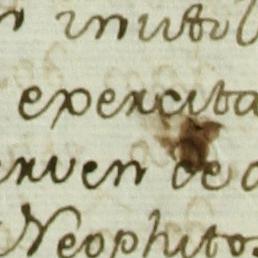 inutil
exercita
erven de
Neophitos